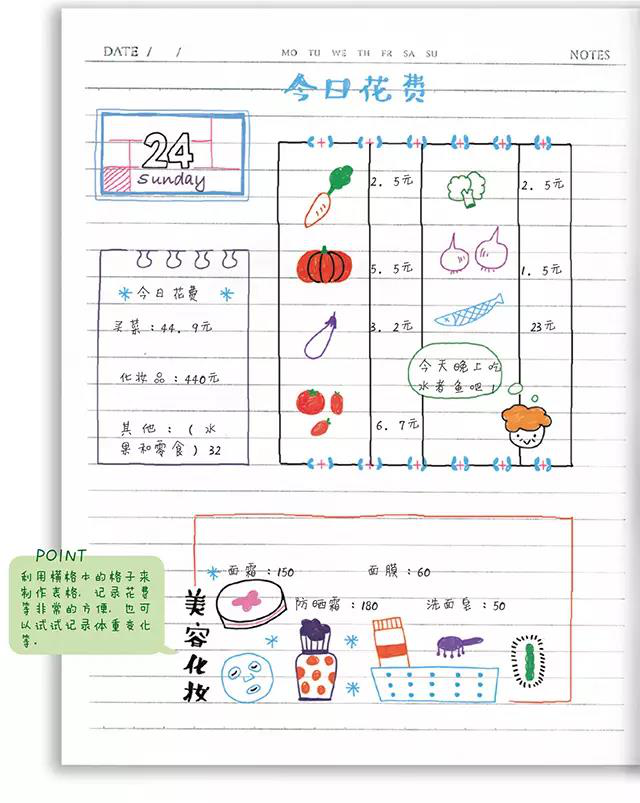 DATE / /
MO TU WE TH FR SA SU
NOTES
今日花费
24
Sunday
今日花费
买菜：44.9元
化妆品：440元
其他：（水
果和零食）32
2.5元
2.5元
5.5元
1.5元
3.2元
23元
6.7元
今天晚上吃
水煮鱼吧！
POINT
利用横格本的格子来
制作表格，记录花费
等非常的方便，也可
以试试记录体重变化
等。
美容化妆
面霜：150
面膜：60
防晒霜：180
洗面皂：50